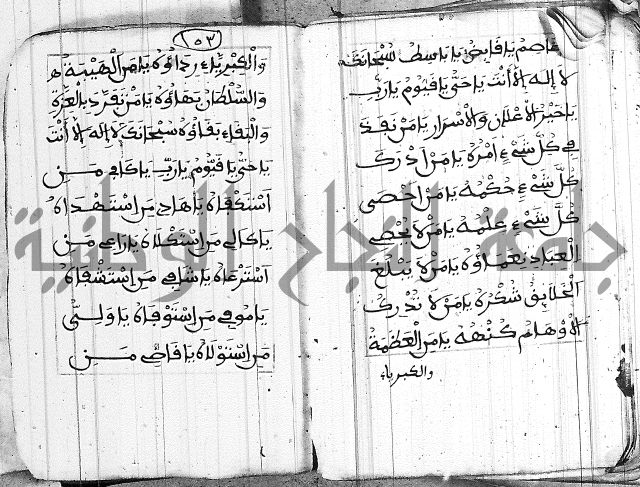 عاصم يا قابض يا باسط سبحانك
لا إله إلا أنت يا حي يا قيوم يا رب
يا خبير الاعلان والأسرار يا من نفذ
في كل شيء امره يا من ادرك
كل شيء حكمه يا من احصى
كل شيء علمه يا من لا يحصي
العباد نعماؤه يا من لا يبلغ
الخلايق شكره يا من لا تدرك
الاوهام كنهه يا من العظمة
والكبرياء
١٥٣
والكبرياء رداؤه يا من الهيبة
والسلطان بهاؤه يا من تفرد بالعزة
والبقاء بقاؤه سبحانك لا إله إلا أنت
يا حي يا قيوم يا رب يا كافي من
استكفاه يا هادي من استهداه
يا كالي من استكلاه يا راعي من
استرعاه يا شافي من استشفاه
يا موفي من استوفاه يا ولي
من استولاه يا قاضي من
جامعة النجاح الوطنية